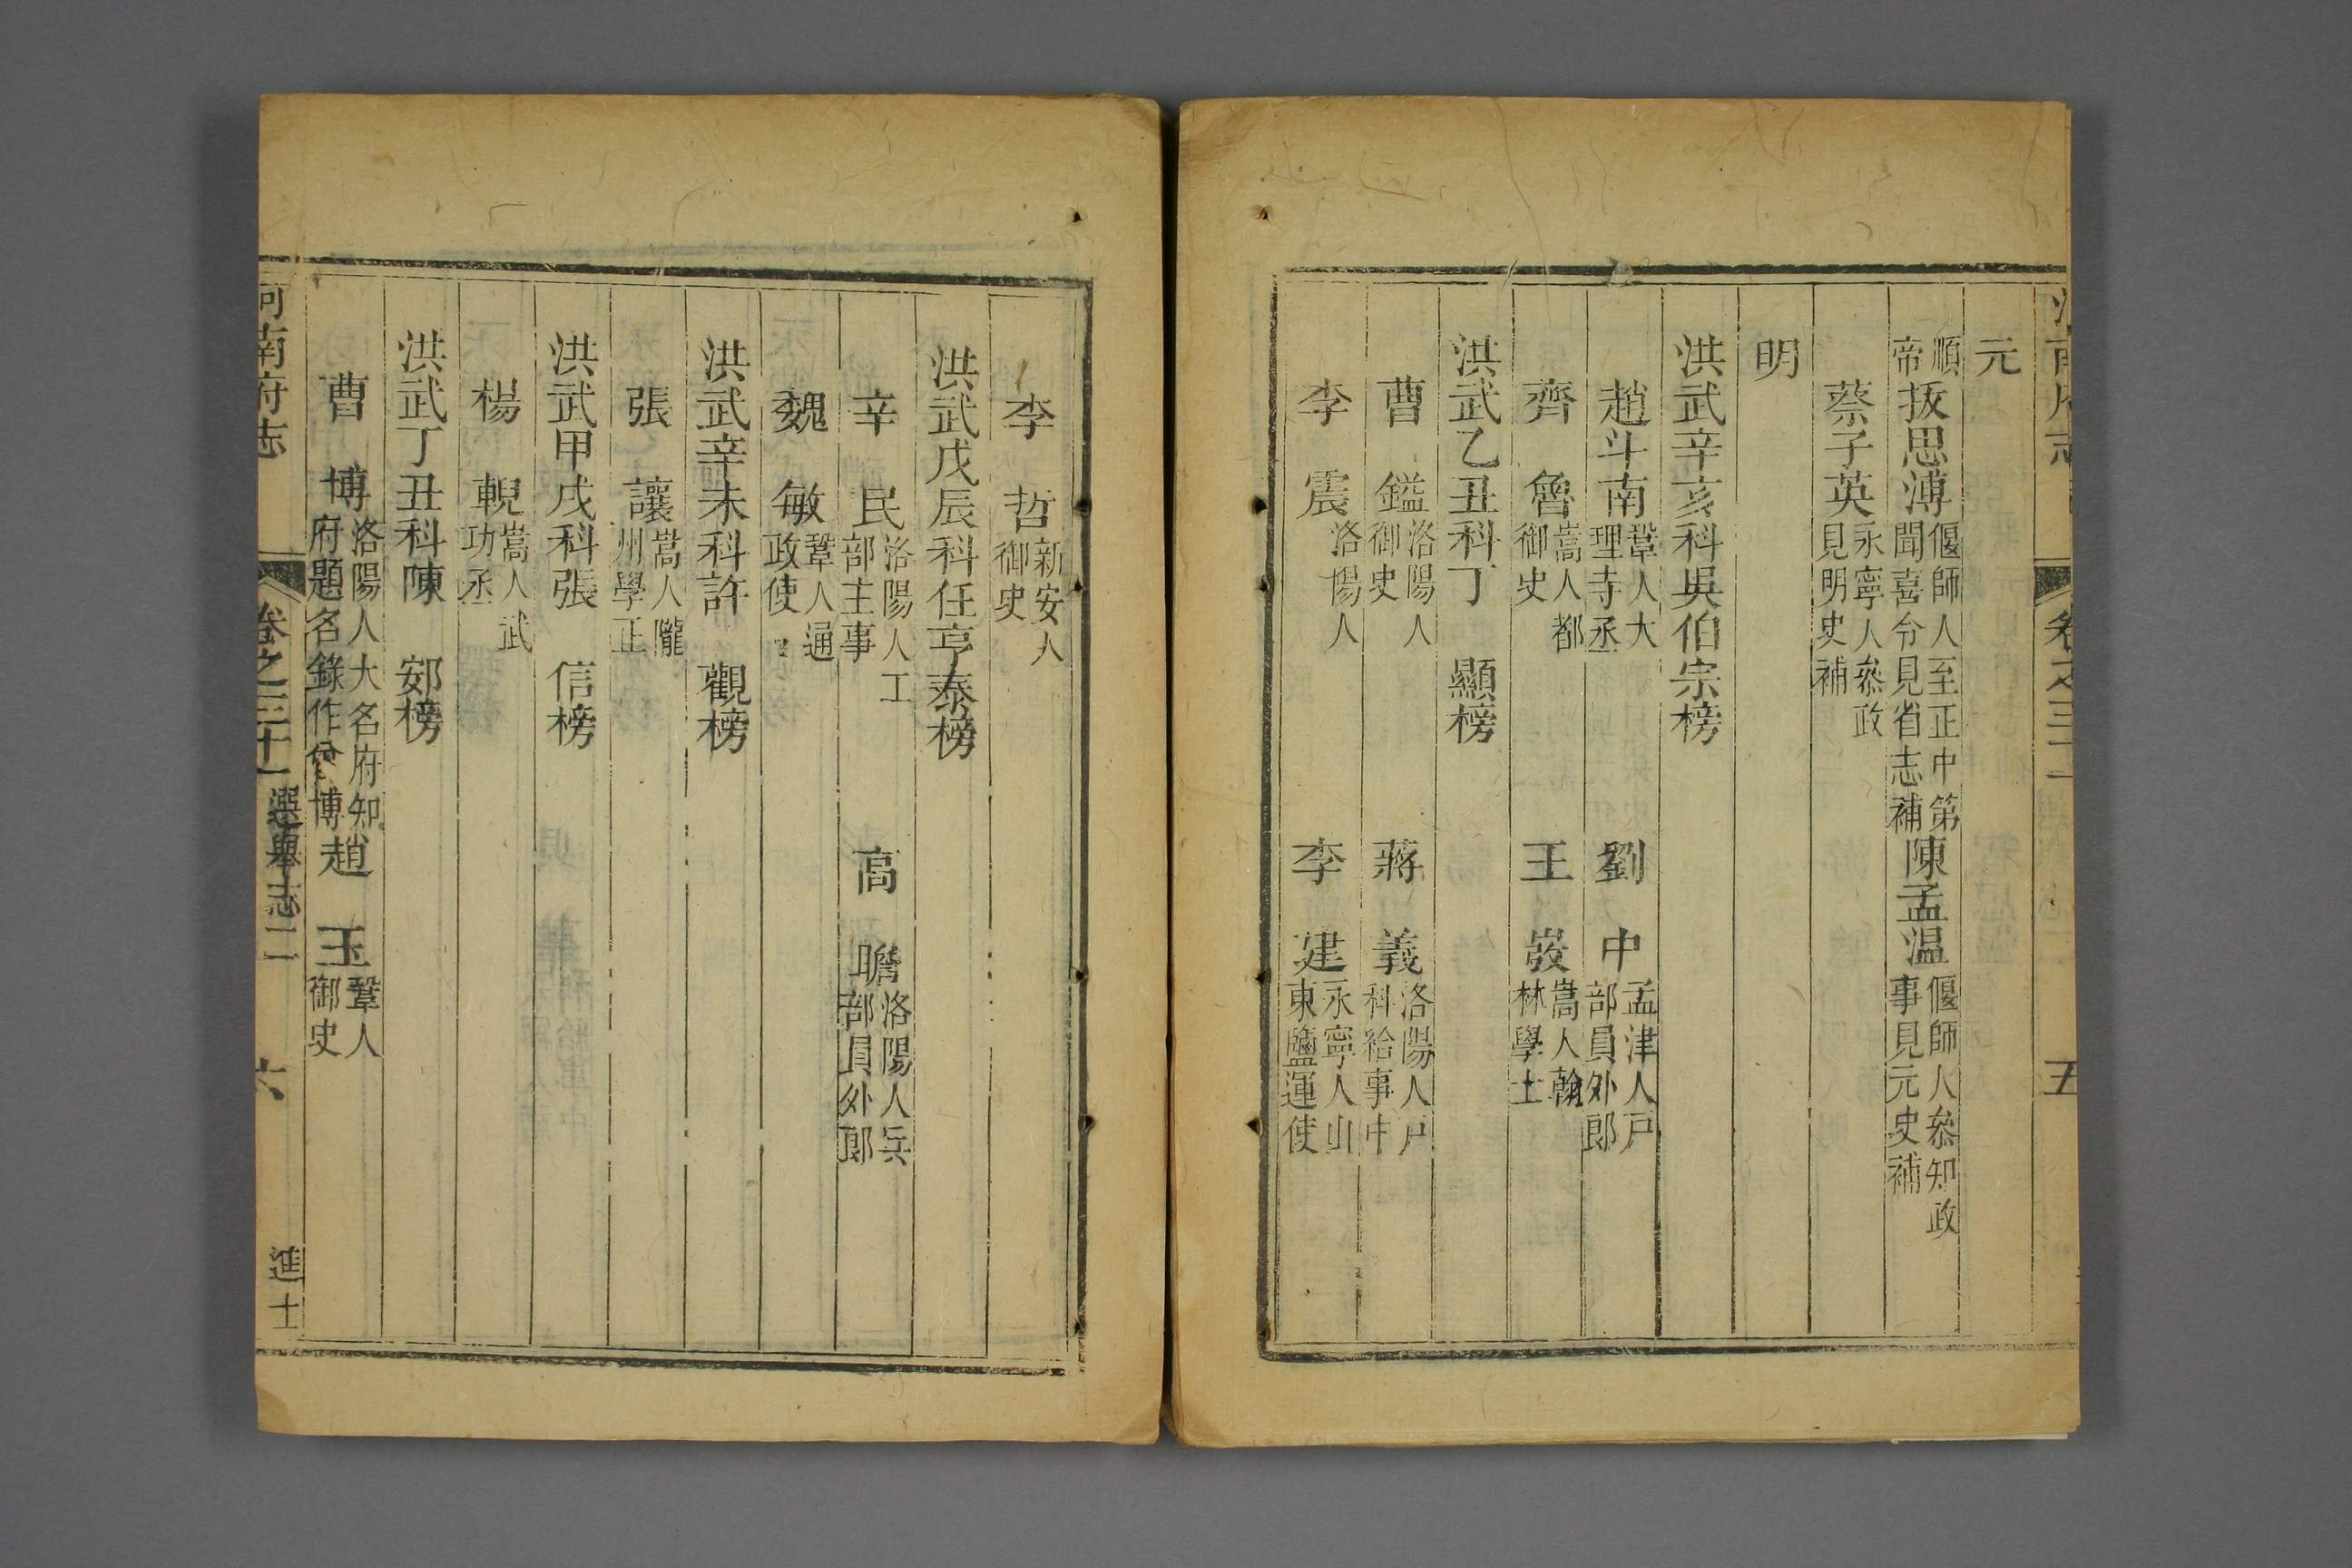 元
順帝 拔思溥 偃師人至正中第聞喜令見省志補 陳孟温 偃師人叅知政事見元史補
蔡子英 永寧人叅政見明史補
明
洪武辛亥科吳伯宗榜
趙斗南 鞏人大理寺丞 劉中 孟津人戸部員外郎
齊魯 嵩人都御史 王㟼 嵩人翰林學士
洪武乙丑科丁顯榜
曹鎰 洛陽人御史 蔣義 洛陽人戸科給事中
李震 洛陽人 李建 永寧人山東鹽運使
李哲 新安人御史
洪武戊辰科任亨泰榜
辛民 洛陽人工部主事 高瞻 洛陽人兵部員外郎
魏敏 鞏人通政使
洪武辛未科許觀榜
張讓 嵩人隴州學正
洪武甲戌科張信榜
楊輗 嵩人武功丞
洪武丁丑科陳䢿榜
曹博 洛陽人大名府知府題名錄作曾博 趙玉 鞏人御史
河南府志 卷之三十一 選舉志二 六 進士